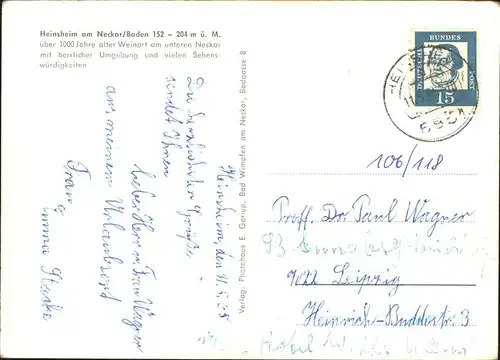 Heinsheim am Neckar/Baden 152 – 204 m ü. M.
über 1000 Jahre alter Weinort am unteren Neckar
mit herrlicher Umgebung und vielen Sehens-
würdigkeiten
Heinsheim, den 11.5.65
Die herzlichsten Grüße
sendet Ihnen
liebe Herr u. Frau Wagner
aus meinem Urlaubsort
Frau
Emma
Verlag: Photohaus E. Gariup, Bad Wimpfen am Neckar, Badgasse 8
DEUTSCHE BUNDESPOST
15
6951
106/118
Proff. Dr. Paul Wagner
7022 Leipzig
Heinrich-Budde Str. 3